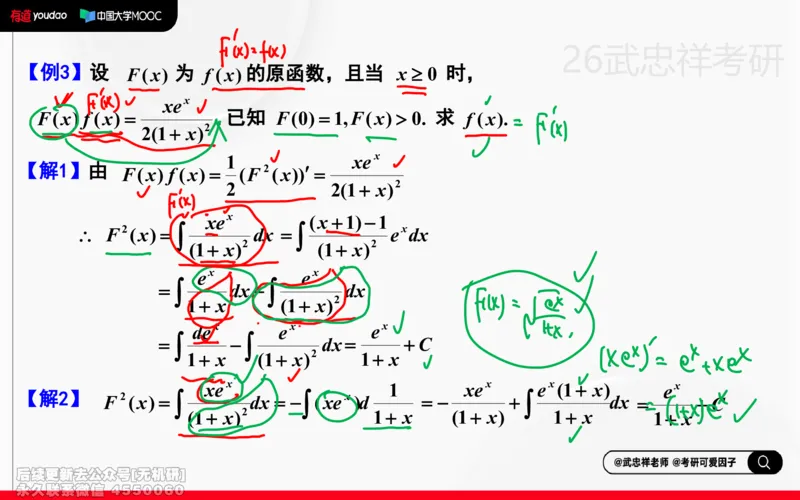 有道 youdao 中国大学MOOC
26武忠祥考研
F'(x)=f(x)
【例3】设 F(x) 为 f(x) 的原函数，且当 x ≥ 0 时，
F'(x)
F(x)f(x) = xe^x / 2(1+x)^2 已知 F(0)=1, F(x)>0. 求 f(x). = F'(x)
【解1】由 F(x)f(x) = 1/2 (F^2(x))' = xe^x / 2(1+x)^2
F'(x)
∴ F^2(x) = ∫ xe^x/(1+x)^2 dx = ∫ ((x+1)-1)/(1+x)^2 e^x dx
= ∫ e^x/(1+x) dx - ∫ e^x/(1+x)^2 dx
F(x) = √(e^x/(1+x)).
= ∫ de^x/(1+x) - ∫ e^x/(1+x)^2 dx = e^x/(1+x) + C
(xe^x)' = e^x + xe^x
= (1+x)e^x
【解2】 F^2(x) = ∫ xe^x/(1+x)^2 dx = -∫ (xe^x)d 1/(1+x) = - xe^x/(1+x) + ∫ e^x(1+x)/(1+x) dx = e^x/(1+x) + C
@武忠祥老师 @考研可爱因子
后续更新去公众号[无机研]
永久联系微信 4550060